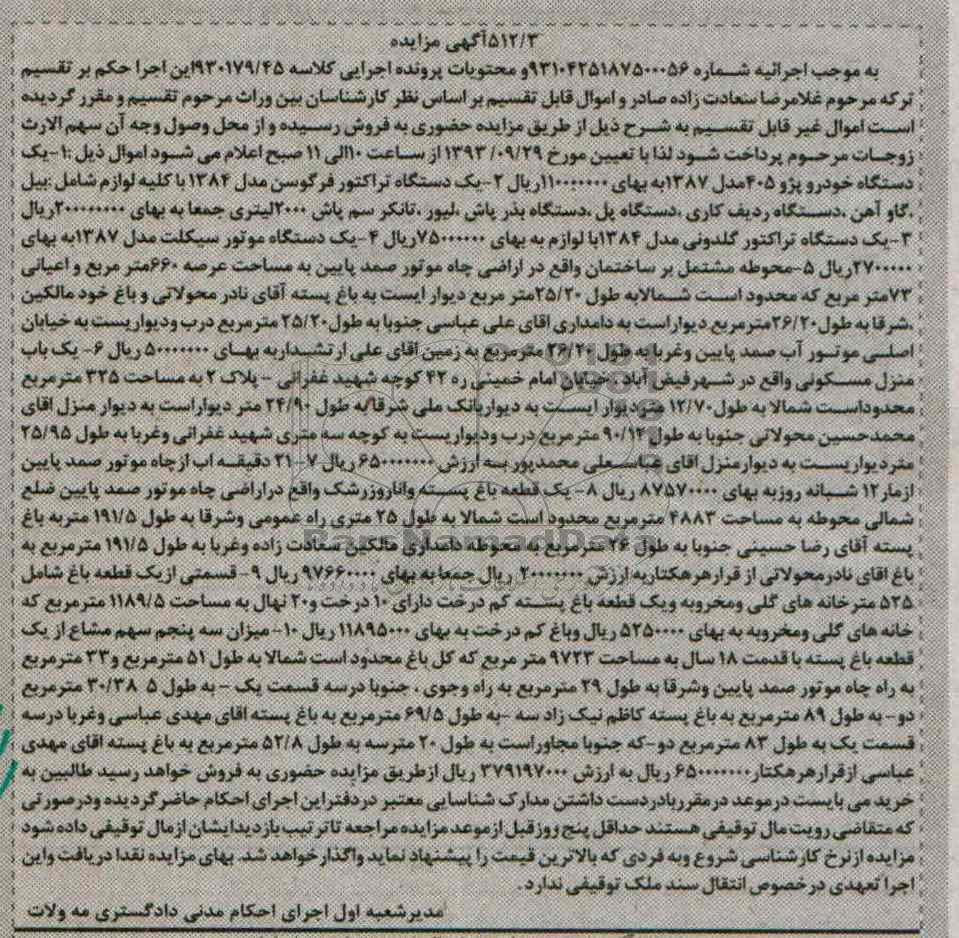 ۵۱۲/۳آگهی مزایده
به موجب اجرائیه شماره ۹۳۱۰۴۲۵۱۸۷۵۰۰۰۵۶و محتویات پرونده اجرایی کلاسه ۹۳۰۱۷۹/۴۵این اجرا حکم بر تقسیم
ترکه مرحوم غلامرضا سعادت زاده صادر و اموال قابل تقسیم بر اساس نظر کارشناسان بین وراث مرحوم تقسیم و مقرر گردیده
است اموال غیر قابل تقسیم به شرح ذیل از طریق مزایده حضوری به فروش رسیده و از محل وصول وجه آن سهم الارث
زوجات مرحوم پرداخت شود لذا با تعیین مورخ ۱۳۹۳/۰۹/۲۹ از ساعت ۱۰الی ۱۱ صبح اعلام می شود اموال ذیل :۱-یک
دستگاه خودرو پژو ۴۰۵مدل ۱۳۸۷به بهای ۱۱۰۰۰۰۰۰۰ریال ۲-یک دستگاه تراکتور فرگوسن مدل ۱۳۸۴ با کلیه لوازم شامل :بیل
،گاو آهن ،دستگاه ردیف کاری ،دستگاه پل ،دستگاه بذر پاش ،لیور ،تانکر سم پاش ۲۰۰۰لیتری جمعا به بهای ۲۰۰۰۰۰۰۰۰ریال
۳-یک دستگاه تراکتور گلدونی مدل ۱۳۸۴با لوازم به بهای ۷۵۰۰۰۰۰۰ریال ۴-یک دستگاه موتور سیکلت مدل ۱۳۸۷به بهای
۲۷۰۰۰۰۰ریال ۵-محوطه مشتمل بر ساختمان واقع در اراضی چاه موتور صمد پایین به مساحت عرصه ۶۶۰متر مربع و اعیانی
۷۳متر مربع که محدود است شمالابه طول ۲۵/۲۰متر مربع دیوار ایست به باغ پسته آقای نادر محولاتی و باغ خود مالکین
،شرقا به طول۲۶/۲۰مترمربع دیواراست به دامداری اقای علی عباسی جنوبا به طول۲۵/۲۰ مترمربع درب ودیواریست به خیابان
اصلی موتور آب صمد پایین وغربا به طول ۲۶/۲۰ مترمربع به زمین آقای علی ارتشداربه بهای ۵۰۰۰۰۰۰۰ ریال ۶- یک باب
منزل مسکونی واقع در شهرفیض آباد ،خیابان امام خمینی ره ۴۲ کوچه شهید غفرانی - پلاک ۲ به مساحت ۳۲۵ مترمربع
محدوداست شمالا به طول۱۲/۷۰ متردیوار ایست به دیواربانک ملی شرقا به طول ۲۴/۹۰ متر دیواراست به دیوار منزل اقای
محمدحسین محولاتی جنوبا به طول ۹۰/۱۲ مترمربع درب ودیواریست به کوچه سه متری شهید غفرانی وغربا به طول ۲۵/۹۵
متردیواریست به دیوارمنزل اقای عباسعلی محمدپور به ارزش ۶۵۰۰۰۰۰۰۰ ریال ۷-۲۱ دقیقه اب ازچاه موتور صمد پایین
ازمار۱۲ شبانه روزبه بهای ۸۷۵۷۰۰۰۰ ریال ۸- یک قطعه باغ پسته واناروزرشک واقع دراراضی چاه موتور صمد پایین ضلع
شمالی محوطه به مساحت ۴۸۸۳ مترمربع محدود است شمالا به طول ۲۵ متری راه عمومی وشرقا به طول ۱۹۱/۵ متربه باغ
پسته آقای رضا حسینی جنوبا به طول ۲۶ مترمربع به محوطه دامداری مالکین سعادت زاده وغربا به طول ۱۹۱/۵ مترمربع به
باغ اقای نادرمحولاتی از قرارهرهکتاربه ارزش ۲۰۰۰۰۰۰۰۰ ریال جمعا به بهای ۹۷۶۶۰۰۰۰ ریال ۹- قسمتی ازیک قطعه باغ شامل
۵۲۵ مترخانه های گلی ومخروبه ویک قطعه باغ پسته کم درخت دارای ۱۰ درخت و۲۰ نهال به مساحت ۱۱۸۹/۵ مترمربع که
خانه های گلی ومخروبه به بهای ۵۲۵۰۰۰۰ ریال وباغ کم درخت به بهای ۱۱۸۹۵۰۰۰ ریال ۱۰- میزان سه پنجم سهم مشاع از یک
قطعه باغ پسته با قدمت ۱۸ سال به مساحت ۹۷۲۳ متر مربع که کل باغ محدود است شمالا به طول ۵۱ مترمربع و۳۳ مترمربع
به راه چاه موتور صمد پایین وشرقا به طول ۲۹ مترمربع به راه وجوی ، جنوبا درسه قسمت یک - به طول ۵ ۳۰/۳۸ مترمربع
دو- به طول ۸۹ مترمربع به باغ پسته کاظم نیک زاد سه -به طول ۶۹/۵ مترمربع به باغ پسته اقای مهدی عباسی وغربا درسه
قسمت یک به طول ۸۳ مترمربع دو-که جنوبا مجاوراست به طول ۲۰ مترسه به طول ۵۲/۸ مترمربع به باغ پسته اقای مهدی
عباسی ازقرارهرهکتار۶۵۰۰۰۰۰۰۰ ریال به ارزش ۳۷۹۱۹۷۰۰۰ ریال ازطریق مزایده حضوری به فروش خواهد رسید طالبین به
خرید می بایست درموعد درمقرربادردست داشتن مدارک شناسایی معتبر دردفتراین اجرای احکام حاضرگردیده ودرصورتی
که متقاضی رویت مال توقیفی هستند حداقل پنج روزقبل ازموعد مزایده مراجعه تاترتیب بازدیدایشان ازمال توقیفی داده شود
مزایده ازنرخ کارشناسی شروع وبه فردی که بالاترین قیمت را پیشنهاد نماید واگذارخواهد شد. بهای مزایده نقدا دریافت واین
اجرا تعهدی درخصوص انتقال سند ملک توقیفی ندارد.
مدیرشعبه اول اجرای احکام مدنی دادگستری مه ولات